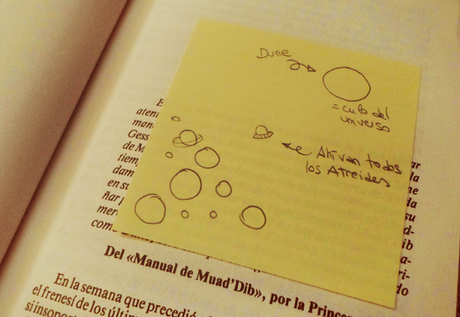 Dune
= culo del
universo
Ahí van todos
los Atreides
E
aten
man
Gess
de M
tiem,
dam
en su
ñar
meri
com
Del «Manual de Muad'Dib», por la Prince
En la semana que precedió
el frenesí de los últim
si insopor